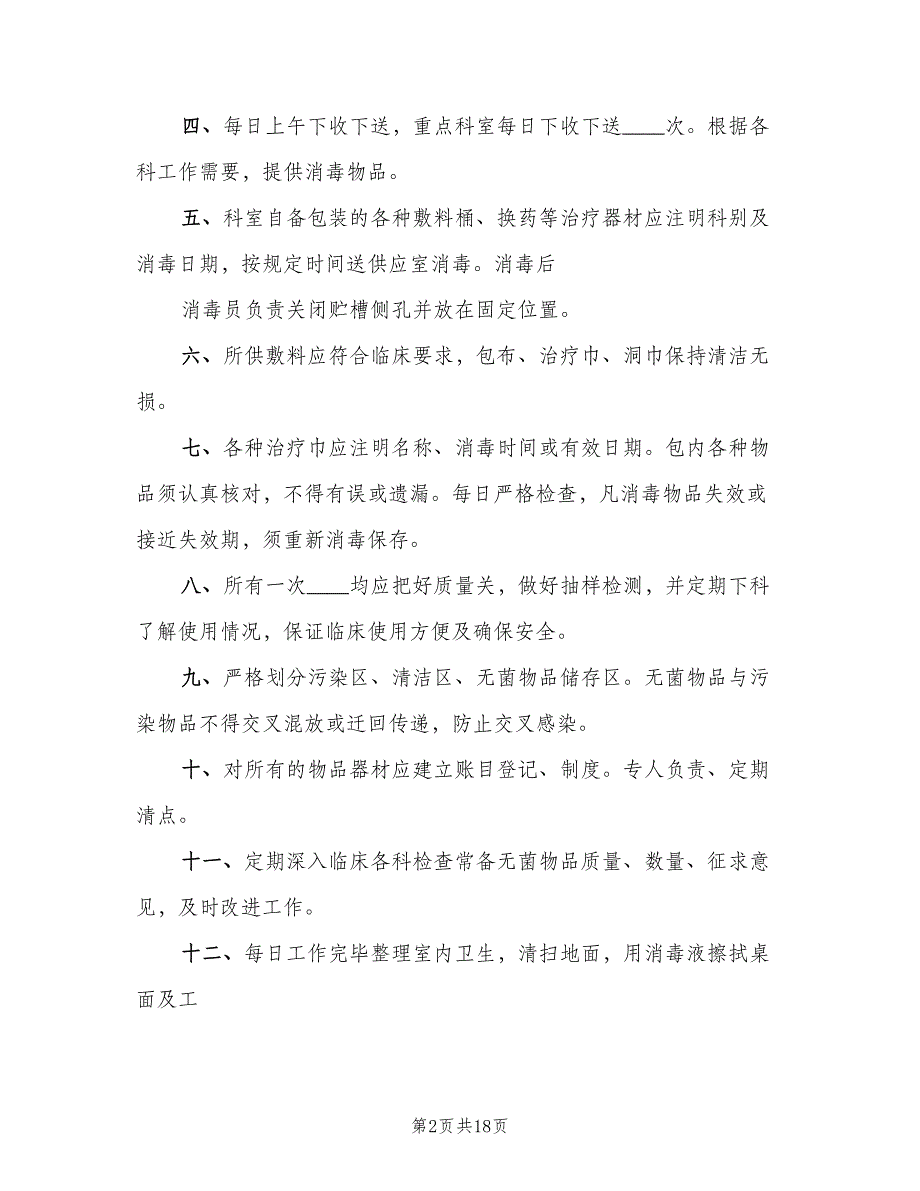 四、每日上午下收下送，重点科室每日下收下送____次。根据各
科工作需要，提供消毒物品。
五、科室自备包装的各种敷料桶、换药等治疗器材应注明科别及
消毒日期，按规定时间送供应室消毒。消毒后
消毒员负责关闭贮槽侧孔并放在固定位置。
六、所供敷料应符合临床要求，包布、治疗巾、洞巾保持清洁无
损。
七、各种治疗巾应注明名称、消毒时间或有效日期。包内各种物
品须认真核对，不得有误或遗漏。每日严格检查，凡消毒物品失效或
接近失效期，须重新消毒保存。
八、所有一次____均应把好质量关，做好抽样检测，并定期下科
了解使用情况，保证临床使用方便及确保安全。
九、严格划分污染区、清洁区、无菌物品储存区。无菌物品与污
染物品不得交叉混放或迂回传递，防止交叉感染。
十、对所有的物品器材应建立账目登记、制度。专人负责、定期
清点。
十一、定期深入临床各科检查常备无菌物品质量、数量、征求意
见，及时改进工作。
十二、每日工作完毕整理室内卫生，清扫地面，用消毒液擦拭桌
面及工
第2页共18页